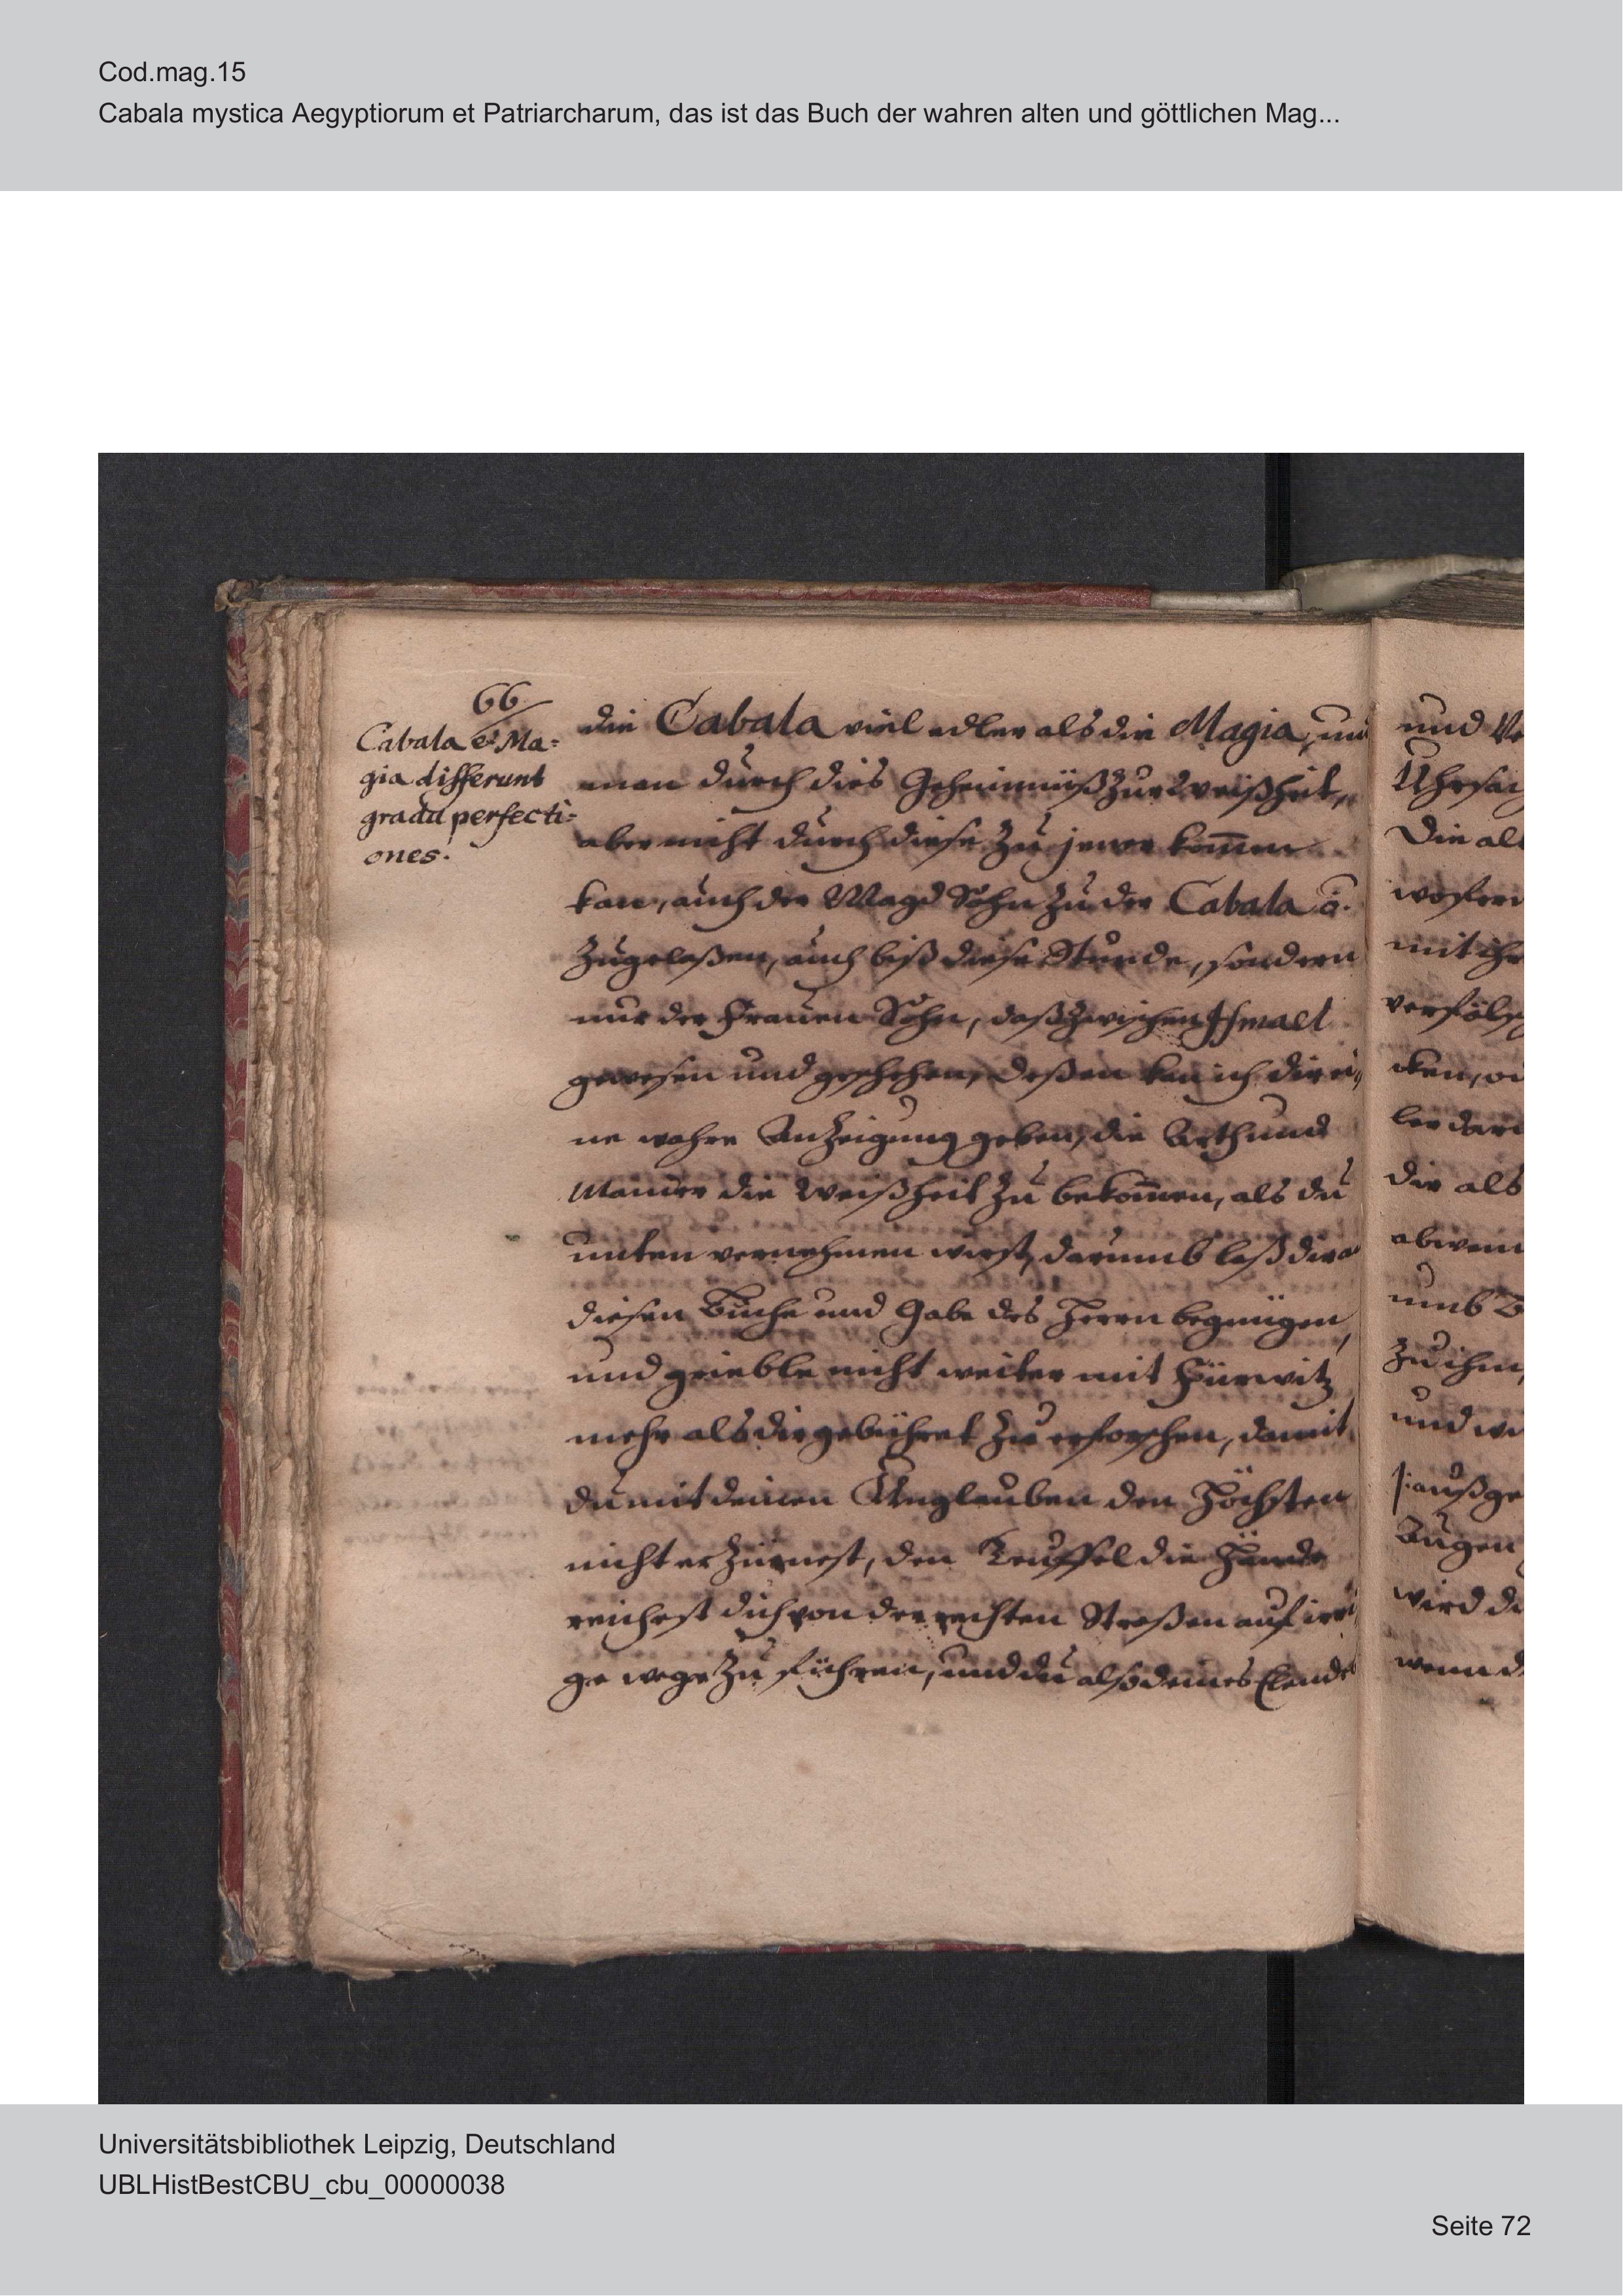 Cod.mag.15
Cabala mystica Aegyptiorum et Patriarcharum, das ist das Buch der wahren alten und göttlichen Mag...
66
Cabala et Ma=
gia differunt
gradu perfecti=
ones.
die Cabala viel edler als die Magia, und
man durch dies Geheimnüß zur Weißheit,
aber nicht durch diese zu jener kom̅en
kan, auch der Magd Sohn zu der Cabala
zugelaßen, auch biß diese Stunde, sondern
nur der Frauen Sohn, daß zwischen Ismael
gewesen und geschehen, deßen kan ich dir ei,
ne wahre Anzeigung geben, die Arth und
Manier die Weißheit zu bekom̅en, als du
unten vernehmen wirst, darumb laß dir
diesen Buche und Gabe des Herrn begnügen,
und grieble nicht weiter mit Fürwitz
mehr als dir gebühret zu erforschen, damit
du mit deinen Unglauben den Höchsten
nicht erzürnest, den Teuffel die Hände
reichest dich von der rechten Straßen auf irri
ge wege zu führen, und du also deines Elende
und
Die al
mit ihr
die als
umb
zu ihm,
und
Augen
wird
wenn
Universitätsbibliothek Leipzig, Deutschland
UBLHistBestCBU_cbu_00000038
Seite 72